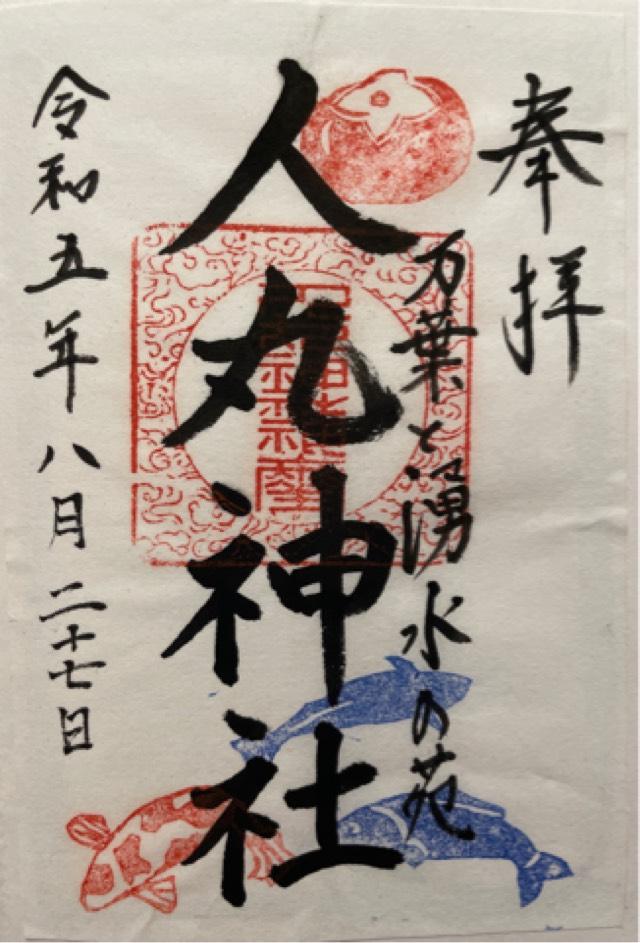 奉拝
万葉と湧水の苑
人丸神社
令和五年八月二十七日